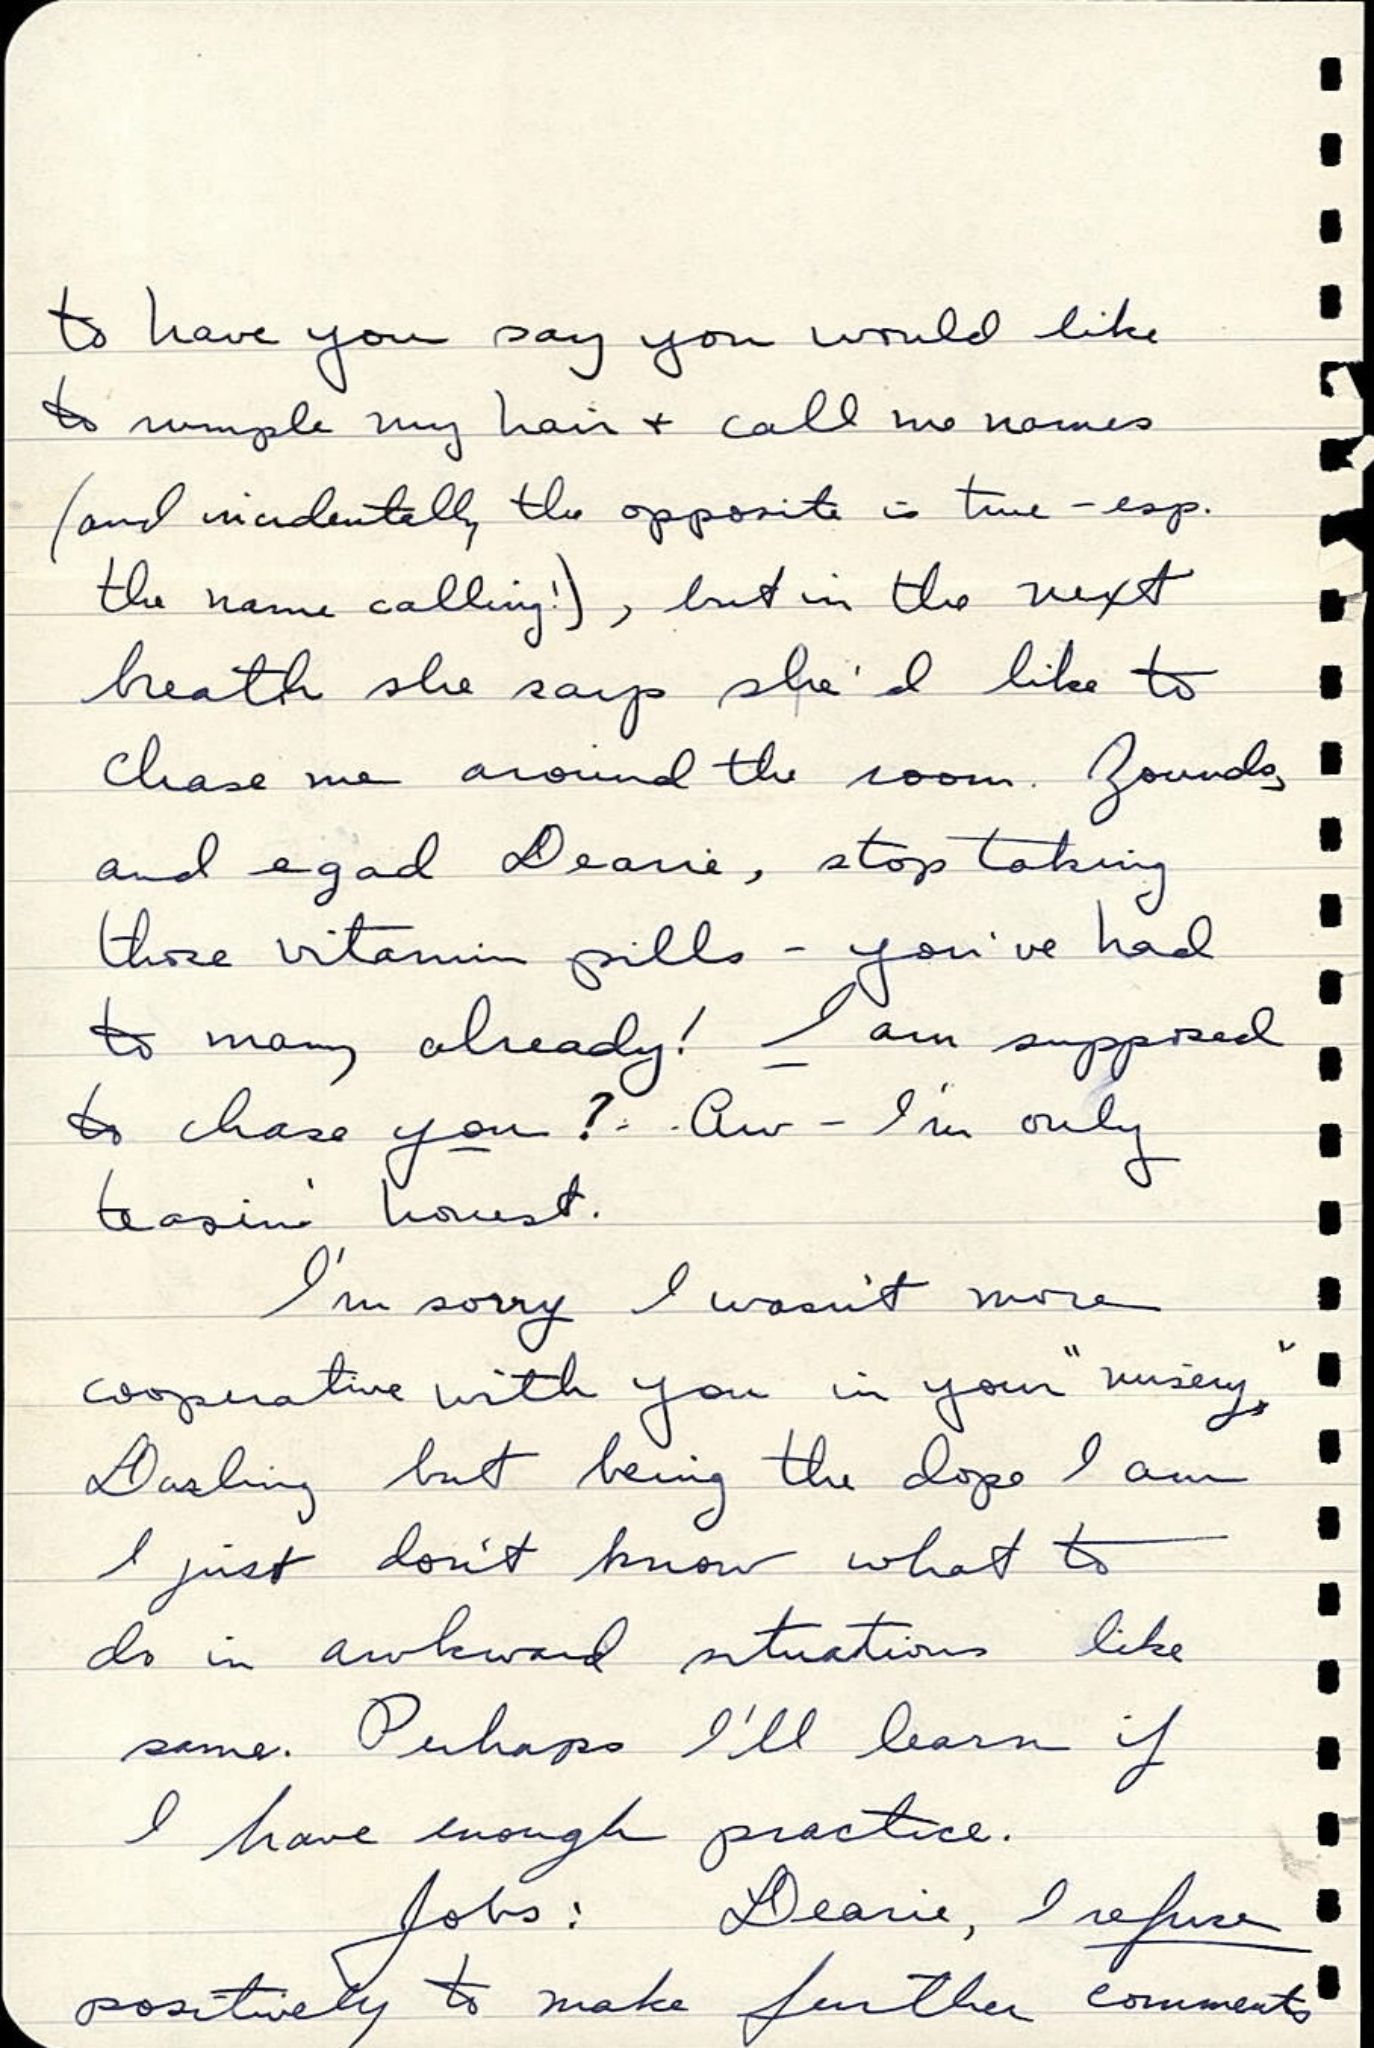 to have you say you would like
to rumple my hair + call me names
(and incidentally the opposite is true - esp.
the name calling!), but in the next
breath she says she'd like to
chase me around the room. Zounds,
and egad Dearie, stop taking
those vitamin pills - you've had
to many already! I am supposed
to chase you? - Aw - I'm only
teasin' honest.
I'm sorry I wasn't more
cooperative with you in your "misery,"
Darling but being the dope I am
I just don't know what to
do in awkward situations like
same. Perhaps I'll learn if
I have enough practice.
Jobs: Dearie, I refuse
positively to make further comments